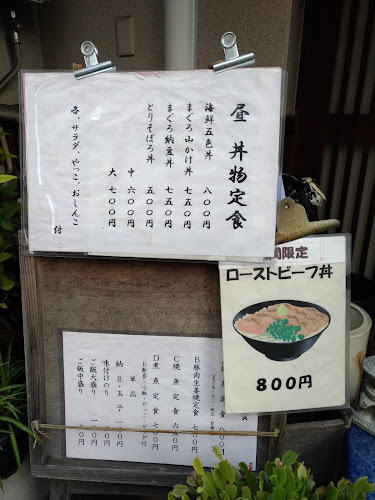 昼 丼物定食
海鮮五色丼 八〇〇円
まぐろ山かけ丼 七五〇円
まぐろ納豆丼 七五〇円
とりそぼろ丼 五〇〇円
中 六〇〇円
大 七〇〇円
各、サラダ、やっこ、おしんこ付
間限定
ローストビーフ丼
800円
定食
B豚肉生姜焼定食
C焼魚定食
D煮魚定食
単品
納豆・玉子
味付けのり
ご飯大盛り
ご飯中盛り